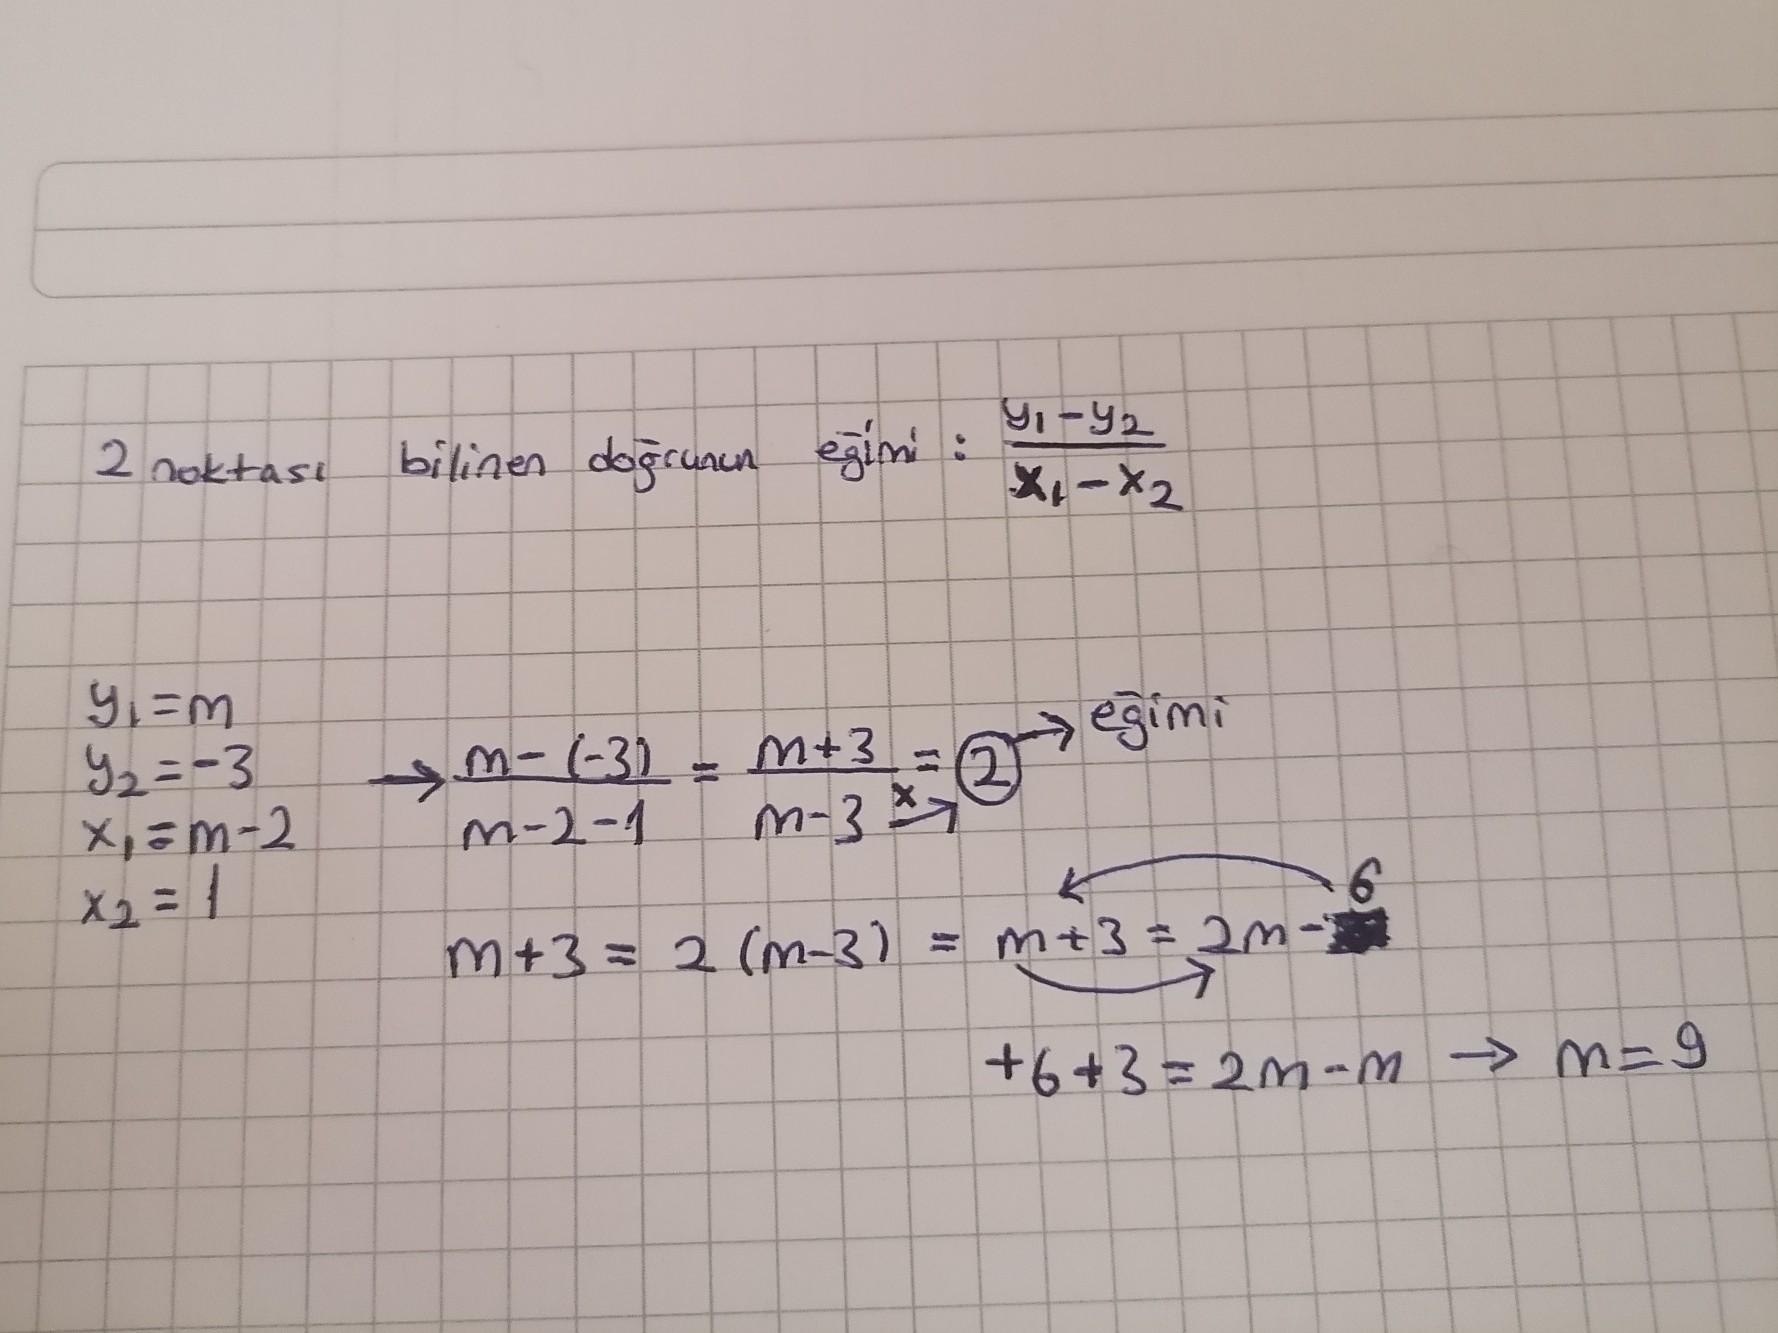 2 noktası bilinen doğrunun eğimi : y₁-y₂ / x₁-x₂
y₁=m
y₂=-3
x₁=m-2
x₂=1
→ m-(-3) / m-2-1 = m+3 / m-3 = 2 → eğimi
x
m+3 = 2(m-3) = m+3 = 2m-6
+6+3=2m-m → m=9